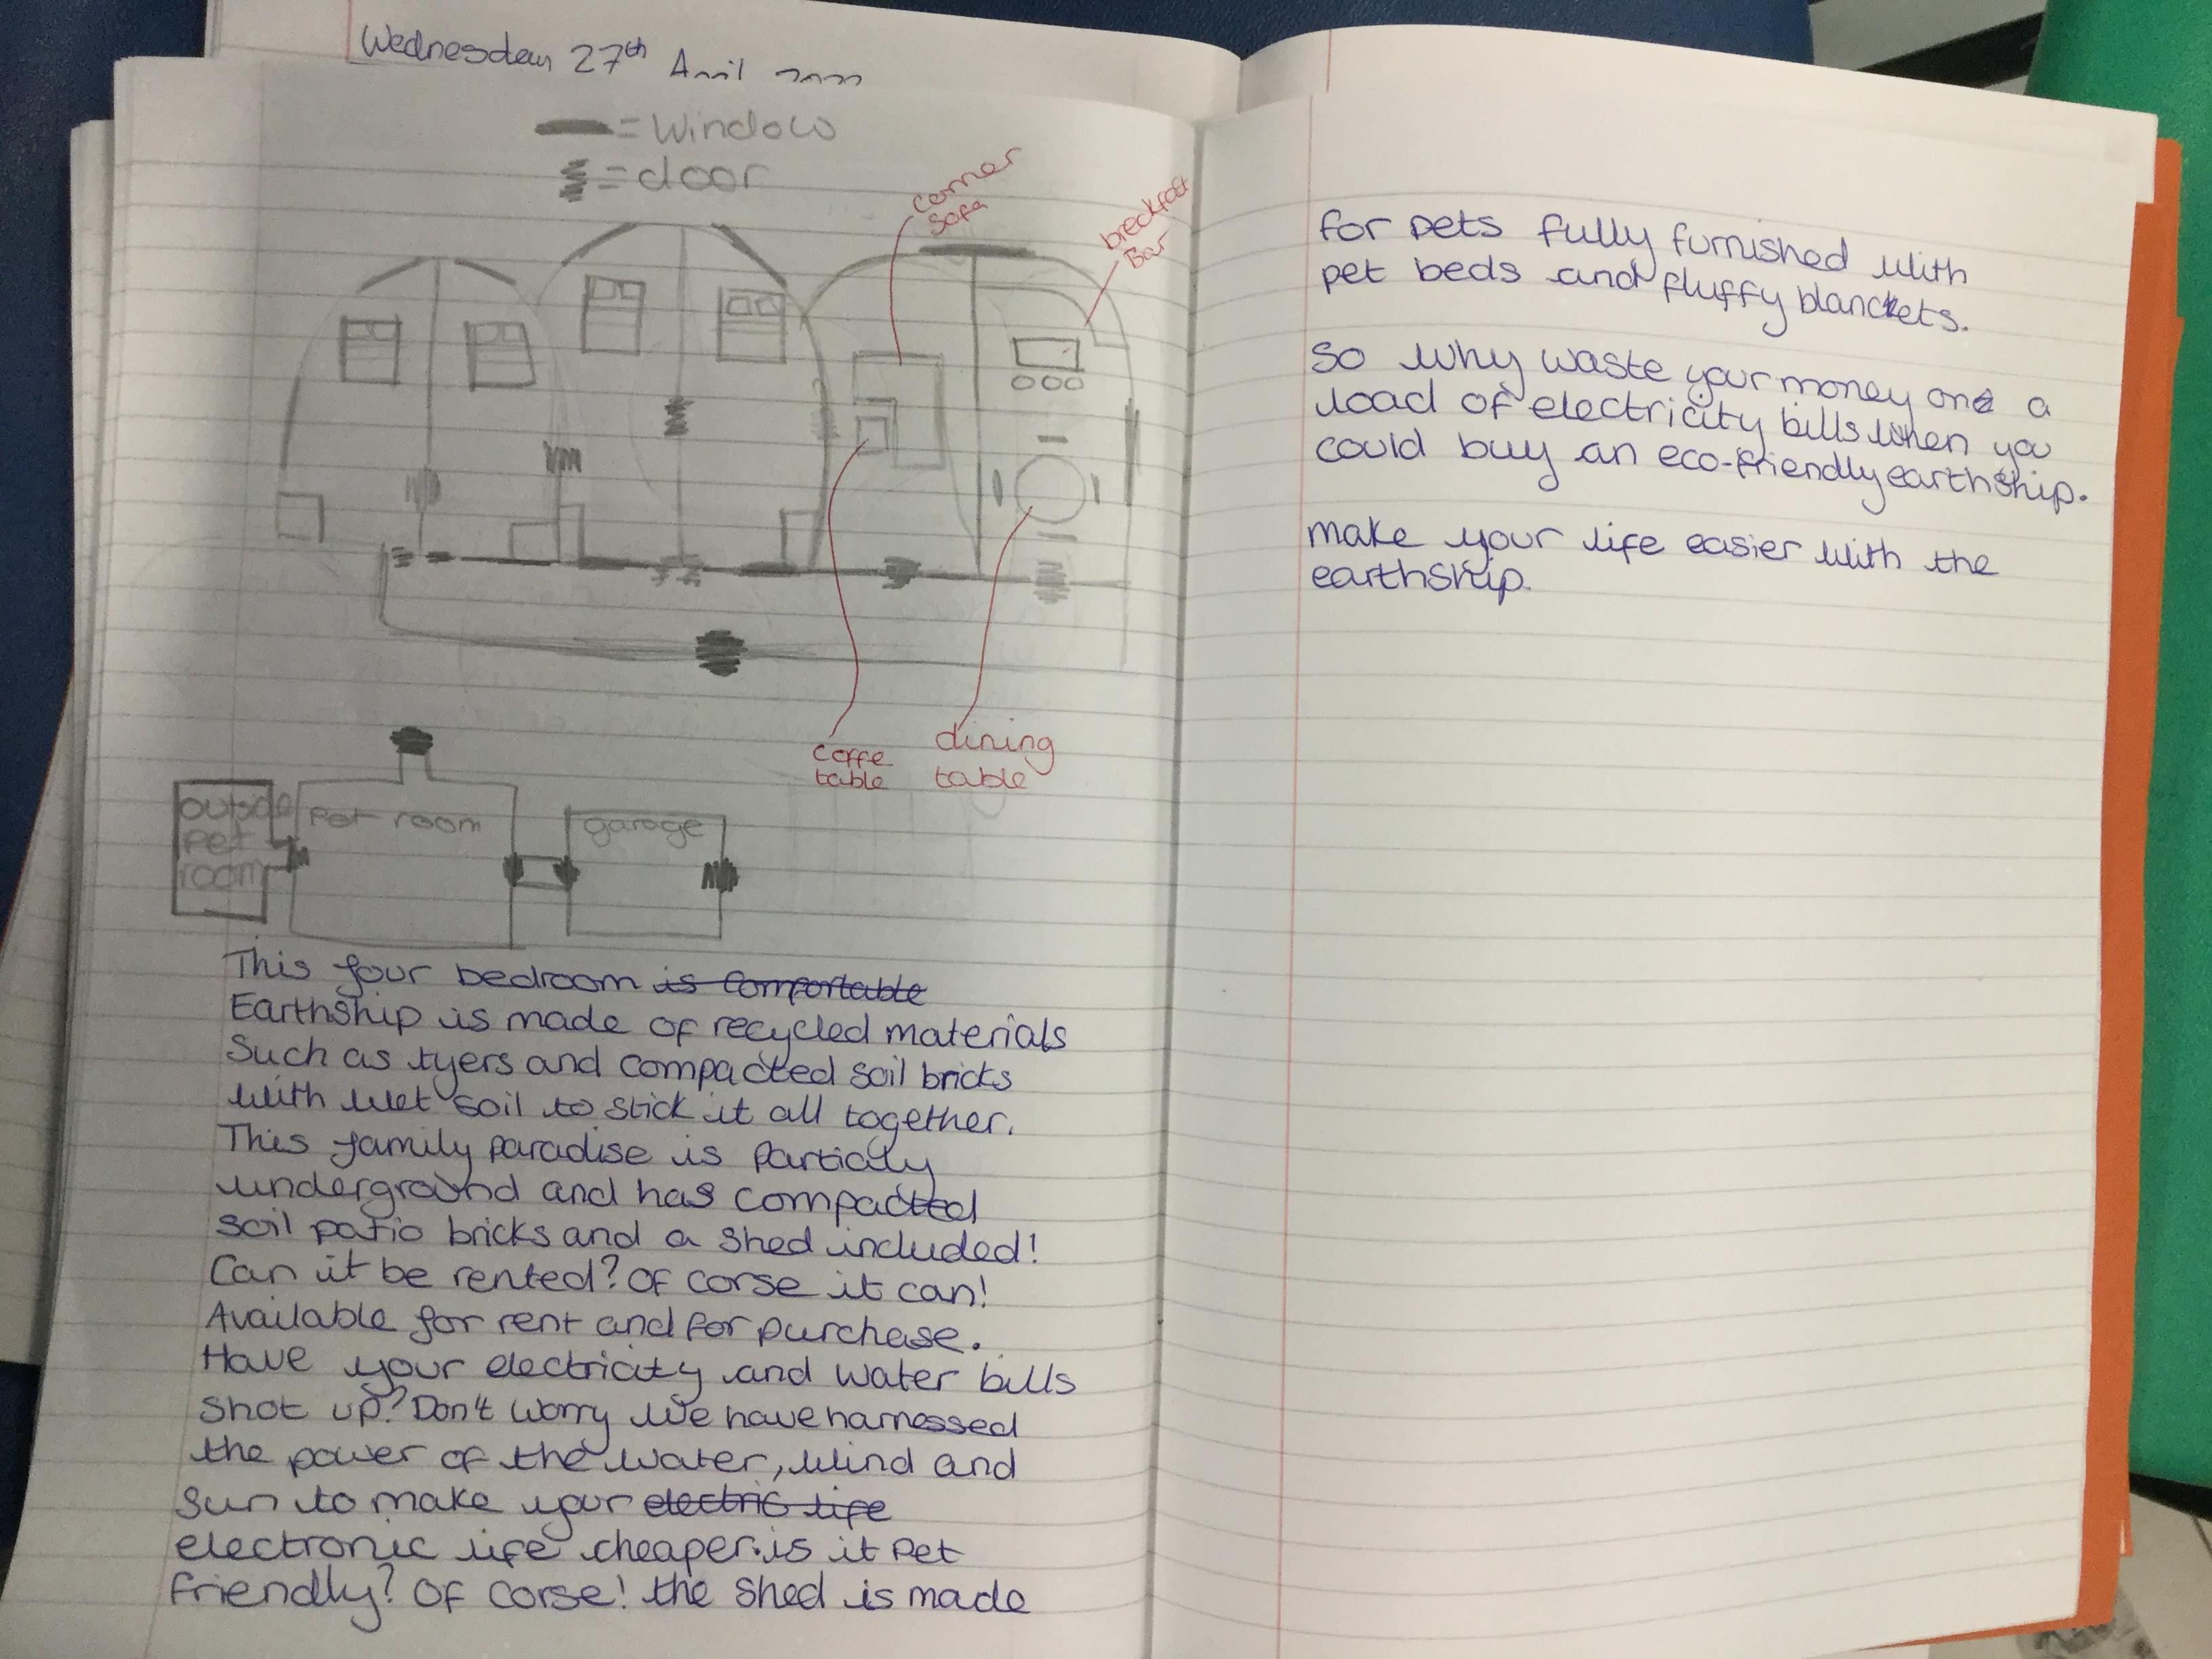 Wednesday 27th April
= Window
= door
corner
sofa
breckfast
Bar
coffe
table
dining
table
outside
pet
room
Pet room
garage
This four bedroom is comfortable
Earthship is made of recycled materials
Such as tyers and compacted soil bricks
with wet soil to stick it all together.
This family paradise is partialy
underground and has compacted
soil patio bricks and a shed included!
Can it be rented? Of corse it can!
Available for rent and for purchase.
Have your electricity and water bills
shot up? Don't worry we have harnessed
the power of the water, wind and
sun to make your electric life
electronic life cheaper. is it pet
friendly? Of corse! the shed is made
for pets fully furnished with
pet beds and fluffy blanckets.
So why waste your money on a
load of electricity bills when you
could buy an eco-friendly earthship.
make your life easier with the
earthship.